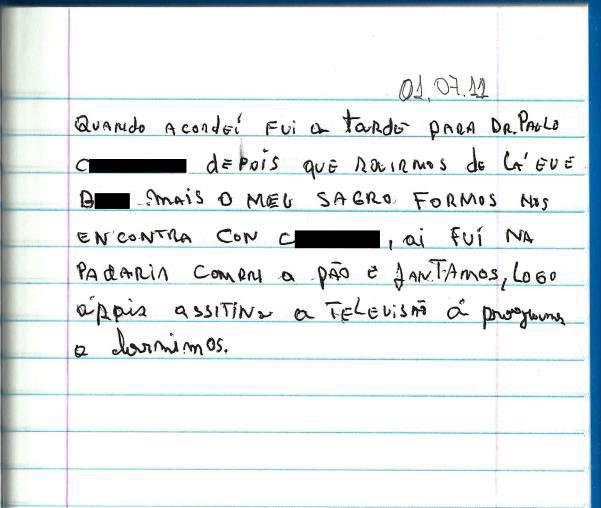 01.07.11
QUANDO ACORDEÍ FUI a tarde PARA DR. PAULO
C DEPOIS QUE SAIRMOS de LÁ EU E
B MAIS O MEU SAGRO FORMOS NOS
ENCONTRA CON C , ai FUÍ NA
PADARIA COMPRA a PÃO E JANTAMOS, LOGO
ASSITINO a TELEVISÃO
e dormimos.